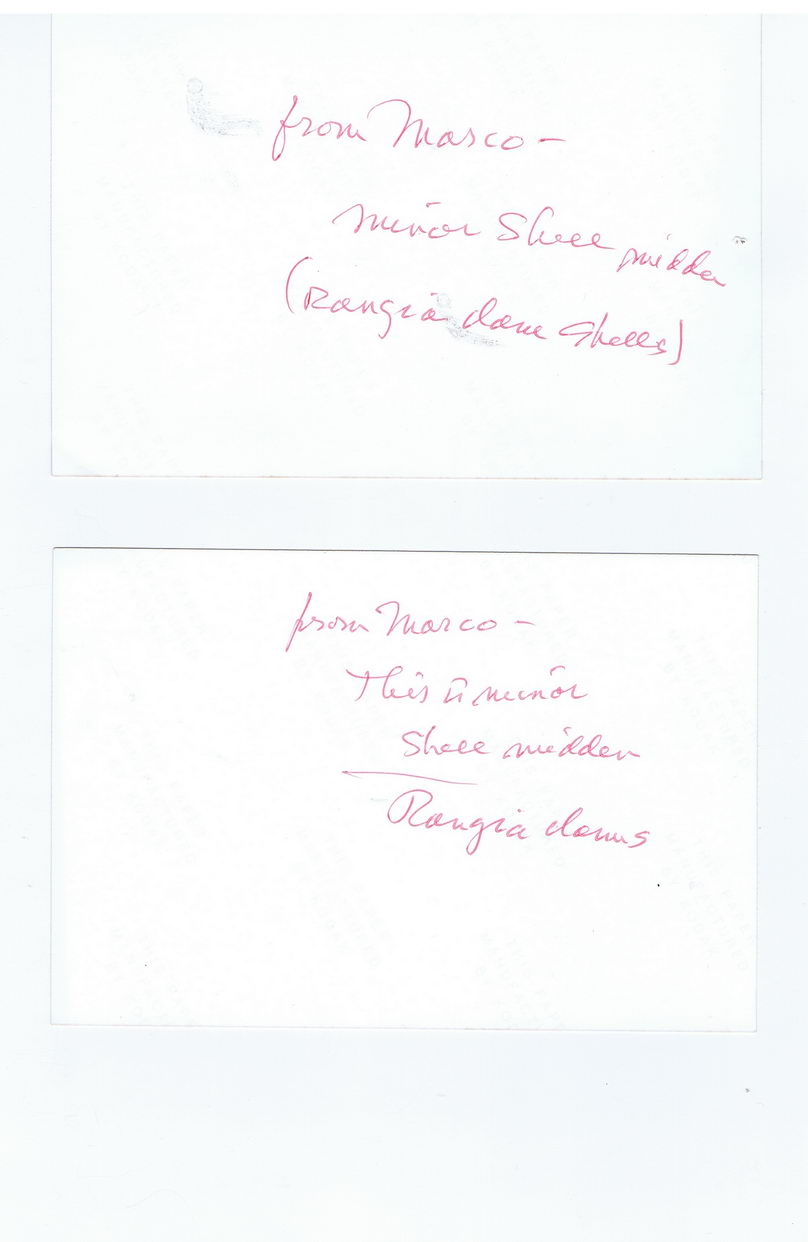 from Marco –
minor Shell midden
(Rangia clam Shells)
from Marco –
This is minor
Shell midden
Rangia clams